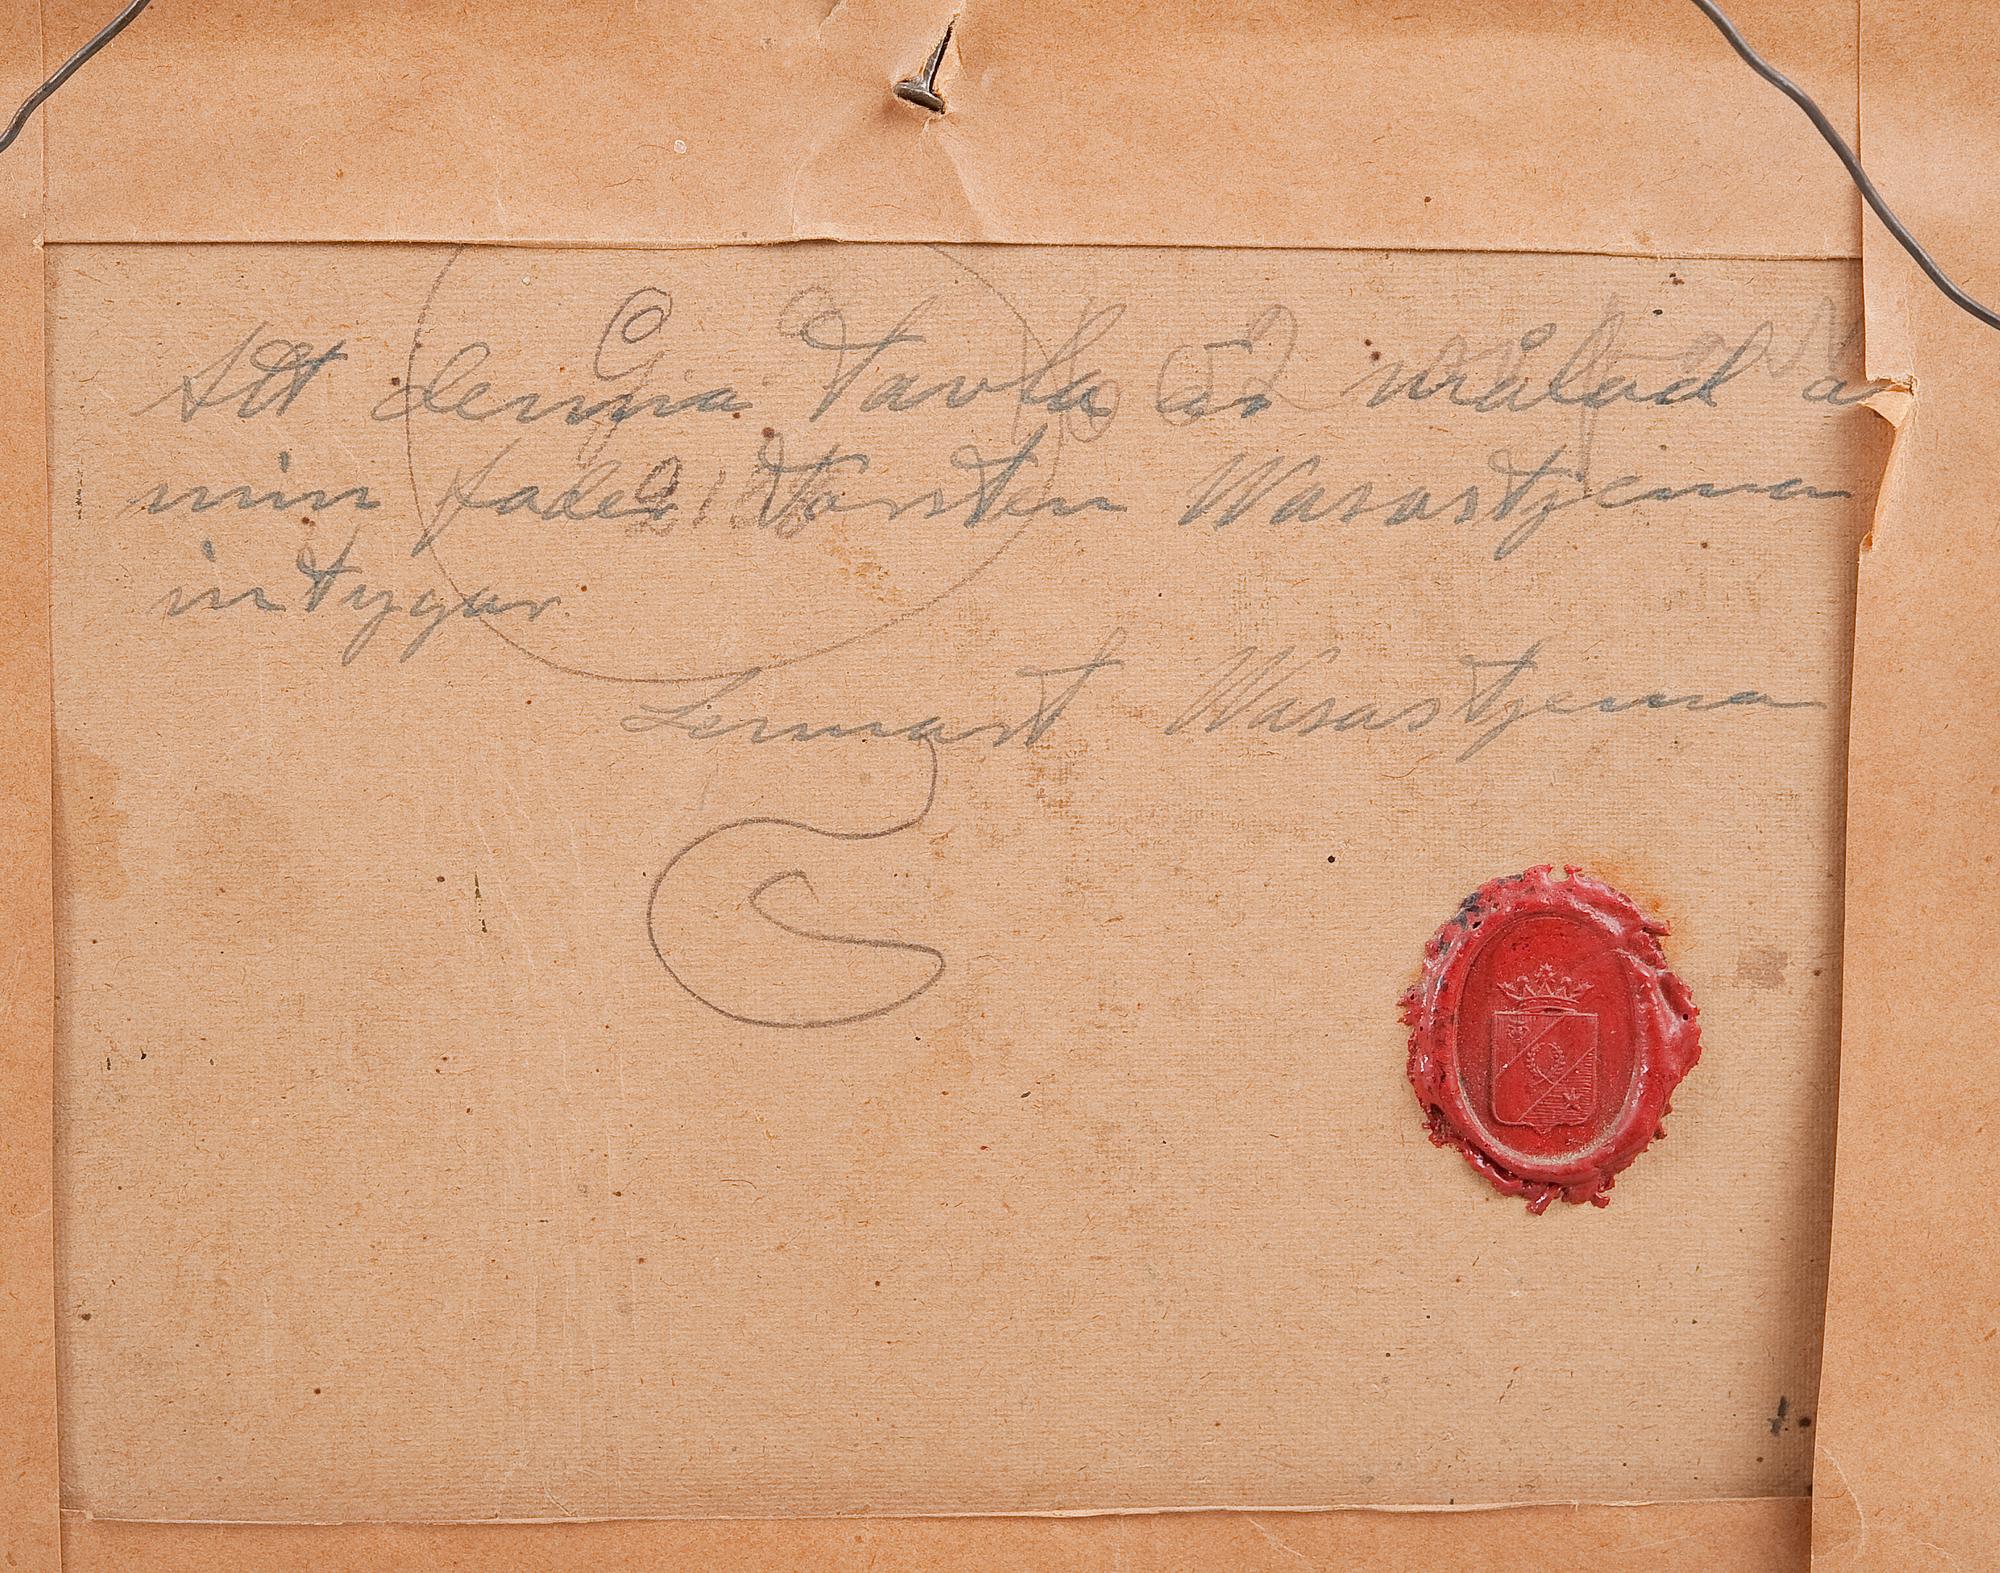 Att denna tavla är målad a
min fader Torsten Wasastjerna
intygar.
Lennart Wasastjerna